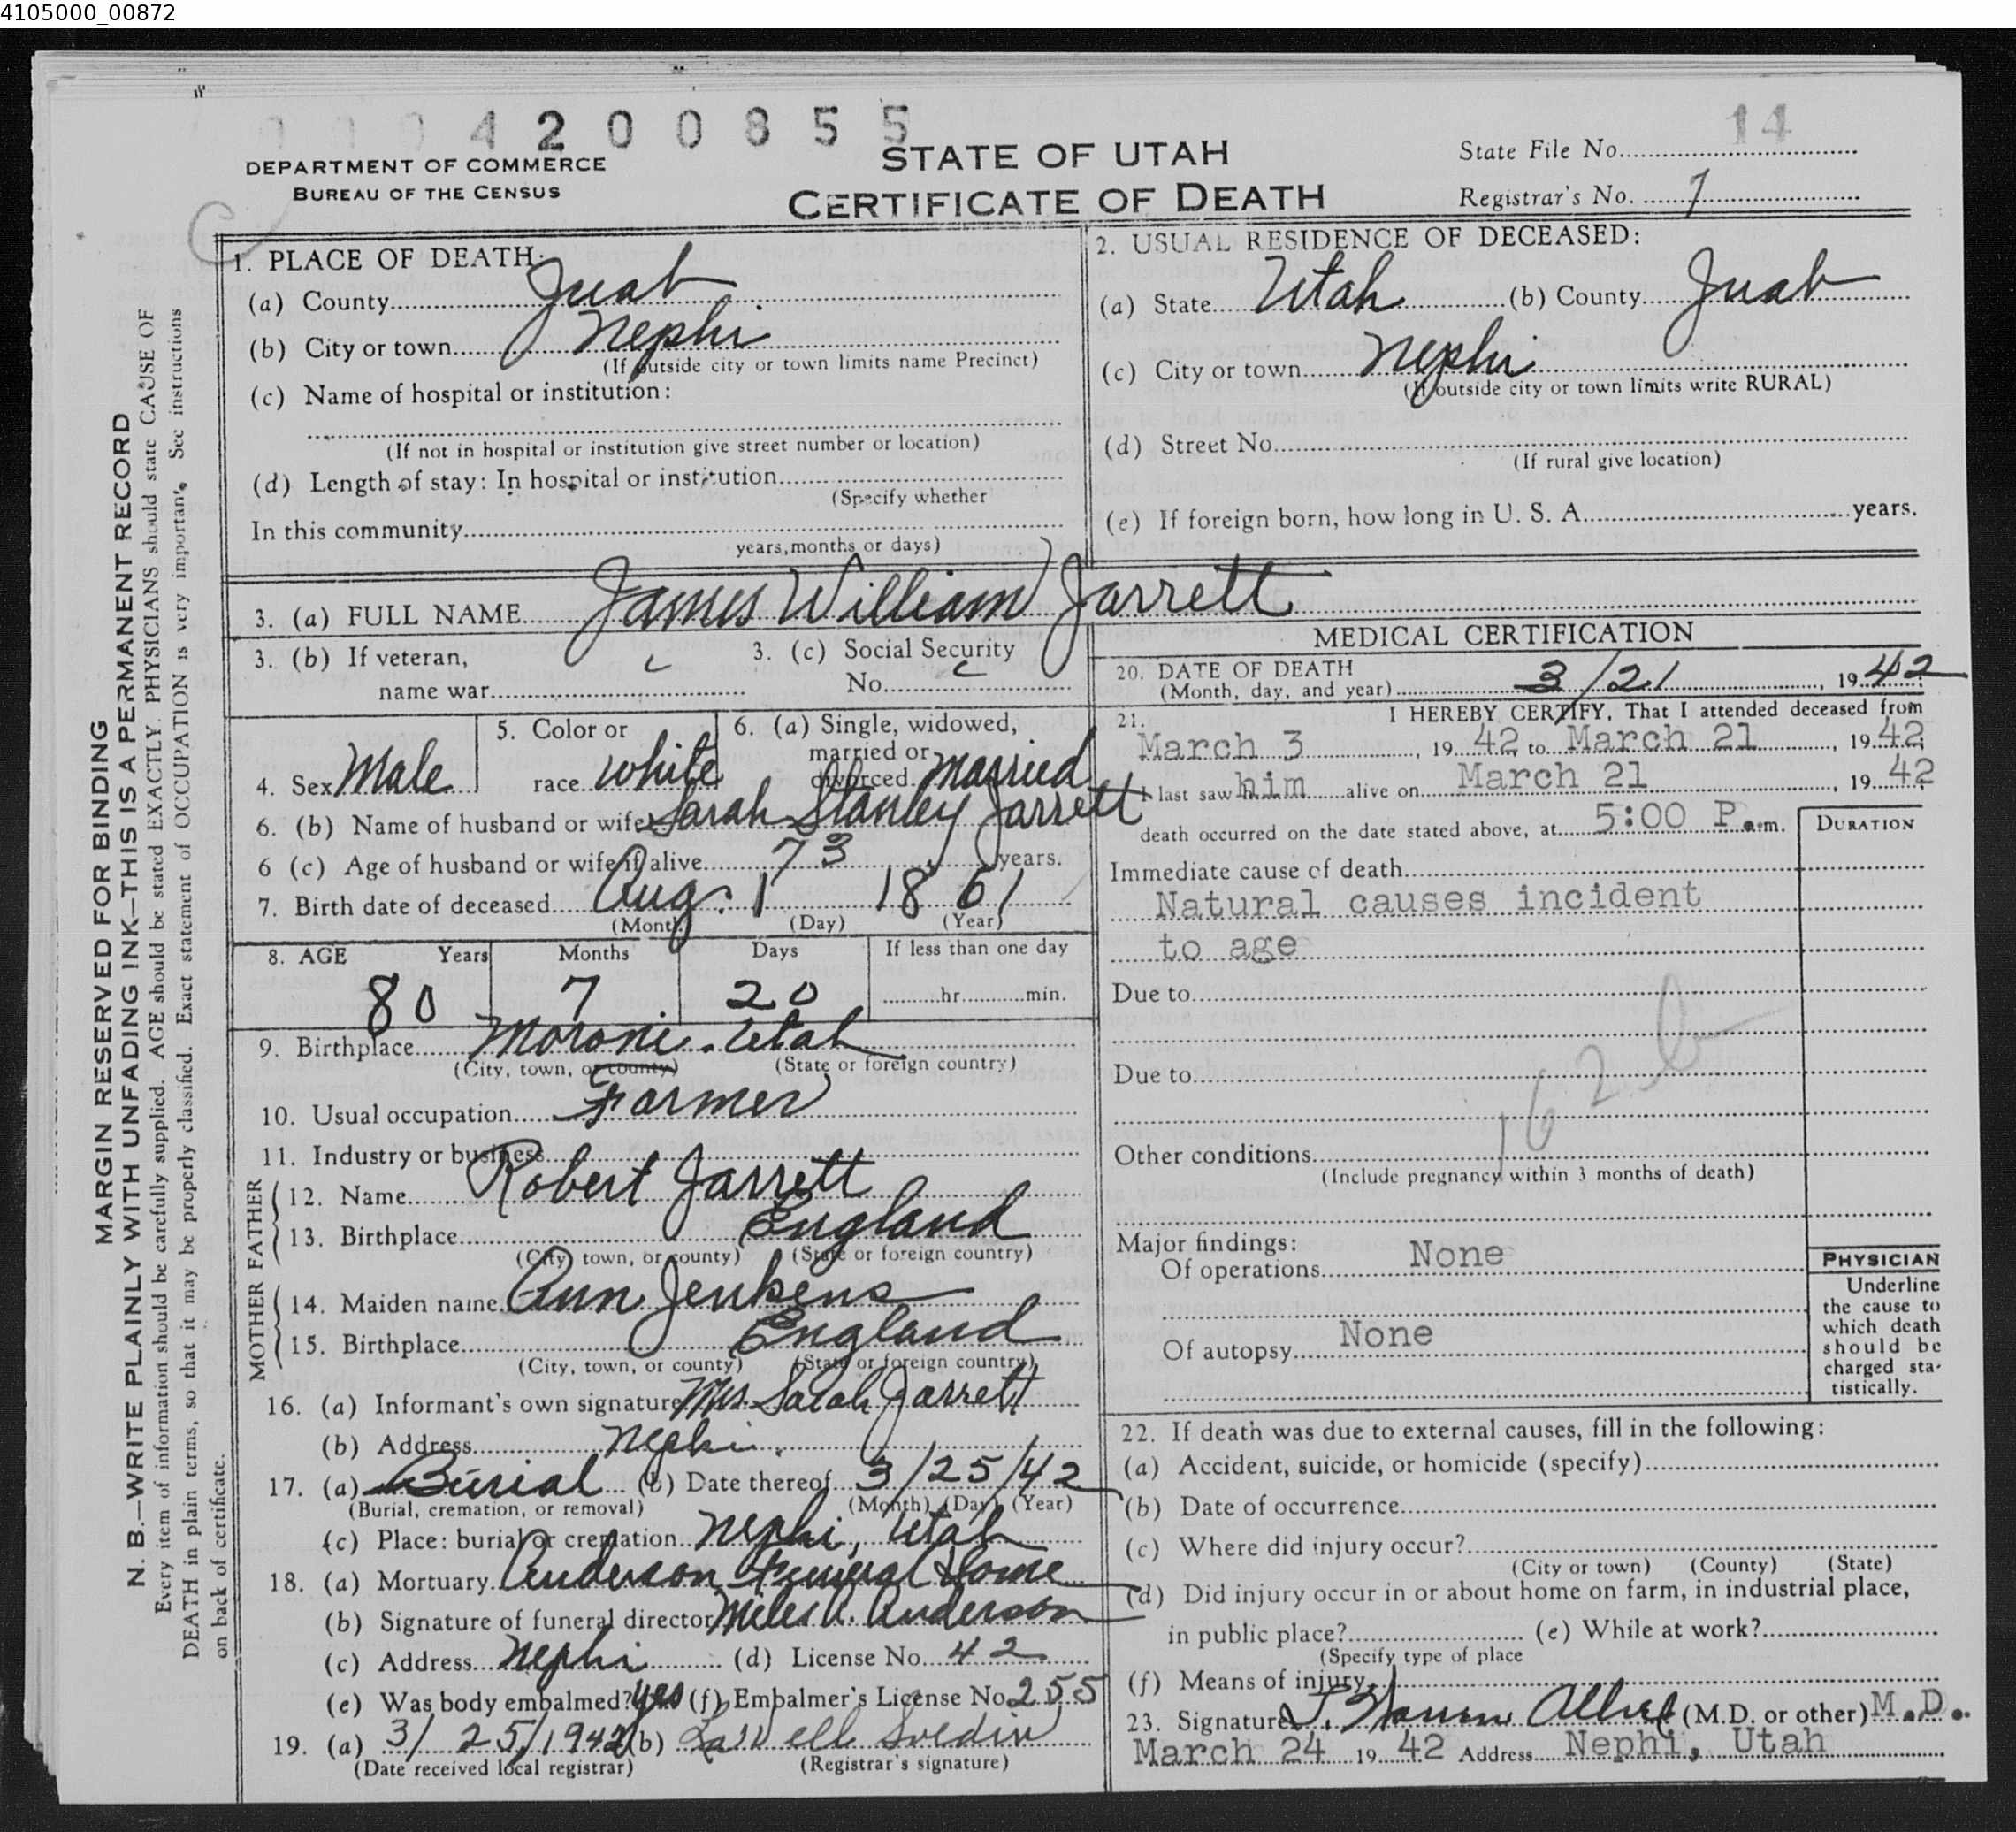 4105000_00872
4 2 0 0 8 5 5
14
DEPARTMENT OF COMMERCE
BUREAU OF THE CENSUS
STATE OF UTAH
CERTIFICATE OF DEATH
State File No.
Registrar's No. 7
C
MARGIN RESERVED FOR BINDING
N. B.—WRITE PLAINLY WITH UNFADING INK—THIS IS A PERMANENT RECORD
Every item of information should be carefully supplied. AGE should be stated EXACTLY. PHYSICIANS should state CAUSE OF
DEATH in plain terms, so that it may be properly classified. Exact statement of OCCUPATION is very important. See instructions
on back of certificate.
1. PLACE OF DEATH:
(a) County Juab
(b) City or town Nephi
(If outside city or town limits name Precinct)
(c) Name of hospital or institution:
(If not in hospital or institution give street number or location)
(d) Length of stay: In hospital or institution
(Specify whether
In this community
years, months or days)
2. USUAL RESIDENCE OF DECEASED:
(a) State Utah (b) County Juab
(c) City or town Nephi
(If outside city or town limits write RURAL)
(d) Street No.
(If rural give location)
(e) If foreign born, how long in U. S. A. years.
3. (a) FULL NAME James William Jarrett
3. (b) If veteran,
name war
3. (c) Social Security
No.
4. Sex Male
5. Color or
race white
6. (a) Single, widowed,
married or
divorced married
6. (b) Name of husband or wife Sarah Stanley Jarrett
6 (c) Age of husband or wife if alive 73 years.
7. Birth date of deceased Aug. 1 1861
(Month) (Day) (Year)
8. AGE Years Months Days If less than one day
80 7 20 hr. min.
9. Birthplace Moroni. Utah
(City, town, or county) (State or foreign country)
10. Usual occupation Farmer
11. Industry or business
FATHER
12. Name Robert Jarrett
13. Birthplace England
(City, town, or county) (State or foreign country)
MOTHER
14. Maiden name Ann Jenkens
15. Birthplace England
(City, town, or county) (State or foreign country)
16. (a) Informant's own signature Mrs. Sarah Jarrett
(b) Address Nephi.
17. (a) Burial (b) Date thereof 3/25/42
(Burial, cremation, or removal) (Month) (Day) (Year)
(c) Place: burial or cremation Nephi, Utah
18. (a) Mortuary Anderson Funeral Home
(b) Signature of funeral director Miles A. Anderson
(c) Address Nephi (d) License No. 42
(e) Was body embalmed? yes (f) Embalmer's License No. 255
19. (a) 3/25/1942 (b)
(Date received local registrar) (Registrar's signature)
MEDICAL CERTIFICATION
20. DATE OF DEATH
(Month, day, and year) 3/21, 1942
21. I HEREBY CERTIFY, That I attended deceased from
March 3, 19 42 to March 21, 19 42
I last saw him alive on March 21, 19 42
death occurred on the date stated above, at 5:00 P. m.
DURATION
Immediate cause of death
Natural causes incident
to age
Due to
Due to
162 b
Other conditions
(Include pregnancy within 3 months of death)
Major findings:
Of operations None
Of autopsy None
PHYSICIAN
Underline
the cause to
which death
should be
charged sta-
tistically.
22. If death was due to external causes, fill in the following:
(a) Accident, suicide, or homicide (specify)
(b) Date of occurrence
(c) Where did injury occur?
(City or town) (County) (State)
(d) Did injury occur in or about home on farm, in industrial place,
in public place? (e) While at work?
(Specify type of place
(f) Means of injury
23. Signature (M.D. or other) M.D.
March 24 19 42 Address Nephi, Utah